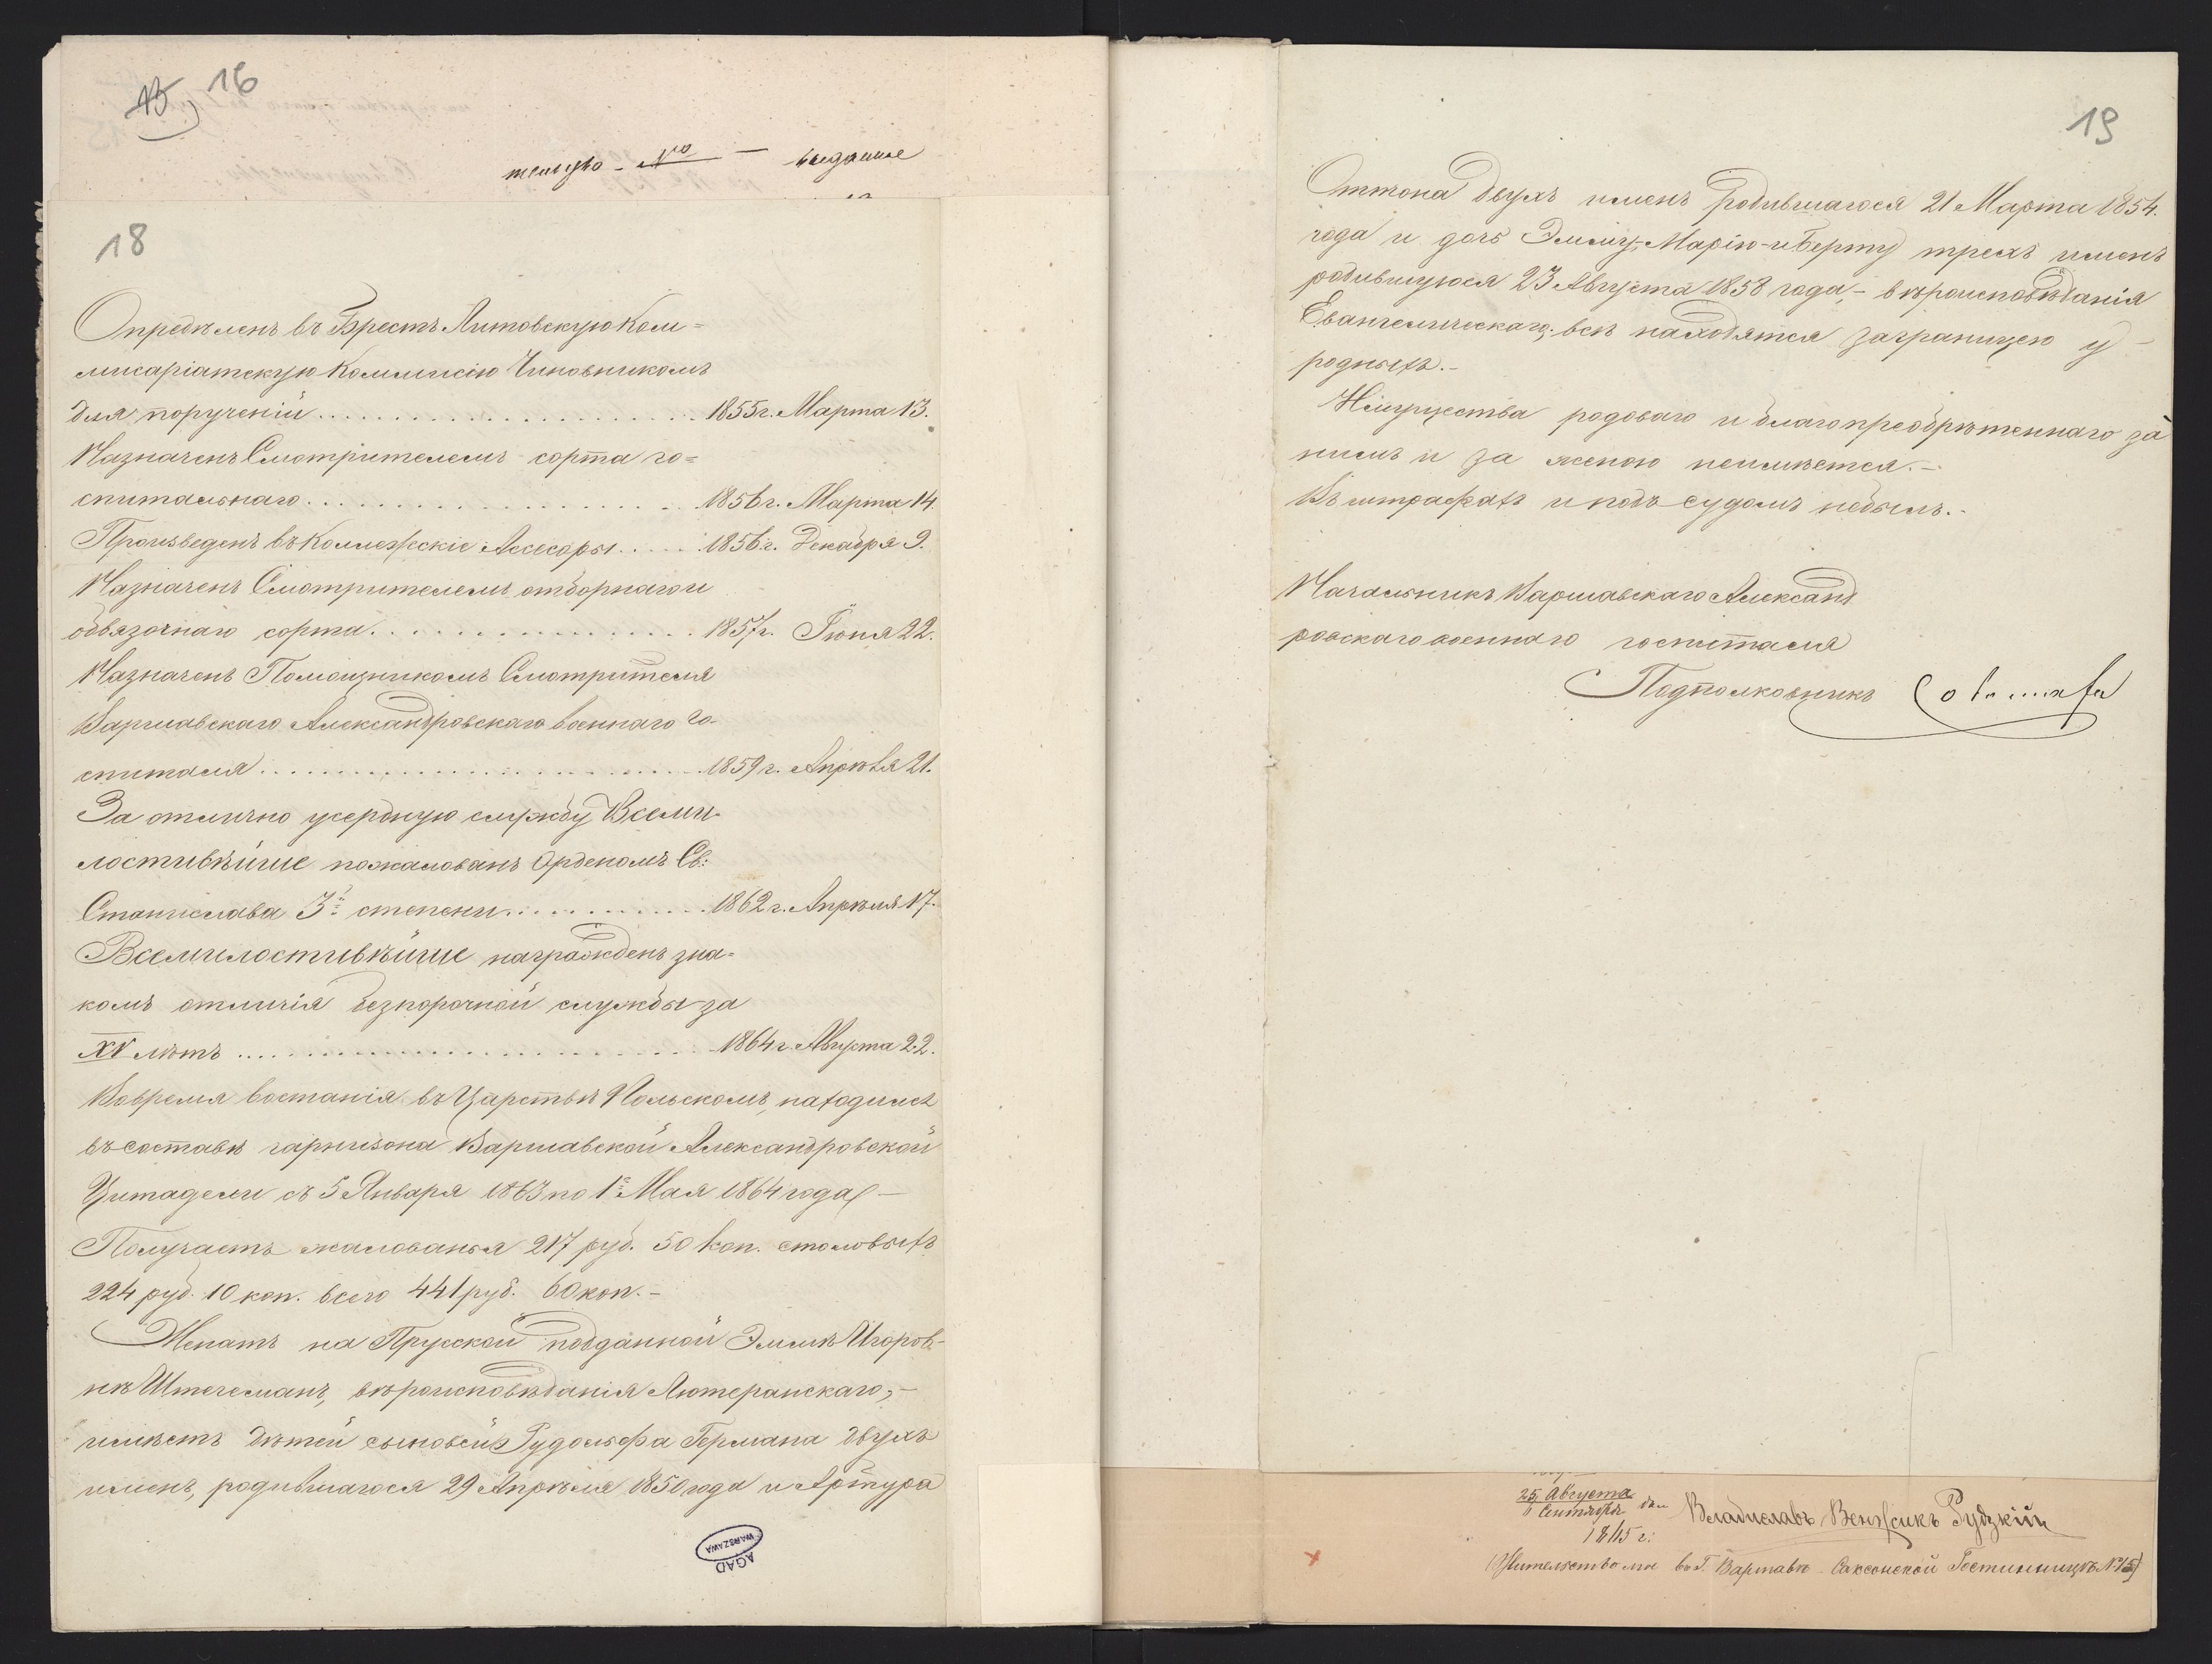 15 16
18
Опредѣленъ въ Брестъ Литовскую Ком=
мисаріатскую Коммисію Чиновникомъ
для порученій . . . . . 1855 г. Марта 13.
Назначенъ Смотрителемъ сорта го=
спитальнаго . . . . . 1856 г. Марта 14.
Произведенъ въ Коллежскіе Ассесоры . . . . . 1856 г. Декабря 9.
Назначенъ Смотрителемъ отборнаго и
обвязочнаго сорта . . . . . 1857 г. Іюня 22.
Назначенъ Помощникомъ Смотрителя
Варшавскаго Александровскаго военнаго го-
спиталя . . . . . 1859 г. Апрѣля 21.
За отлично усердную службу Всеми-
лостивѣйше пожалованъ Орденомъ Св:
Станислава 3й степени . . . . . 1862 г. Апрѣля 17.
Всемилостивѣйше награжденъ зна=
комъ отличія безпорочной службы за
XV лѣтъ . . . . . 1864 г. Августа 22.
Вовремя востанія въ Царствѣ Польскомъ, находился
въ составѣ гарнизона Варшавской Александровской
Цитадели съ 5 Января 1863 по 1е Мая 1864 года –
Получаетъ жалованья 217 руб. 50 коп. столовыхъ
224 руб. 10 коп. всего 441 руб. 60 коп. –
Женатъ на Прусской подданной Эмиліи Игоров-
нѣ Штегеманъ, вѣроисповѣданія Лютеранскаго, –
имѣетъ дѣтей сыновей Рудольфа Германа двухъ
именъ, родившагося 29 Апрѣля 1850 года и Артура
AGAD
WARSZAWA
19
Оттона двухъ именъ родившагося 21 Марта 1854.
года и дочь Эмилу-Марію-и Берту трехъ именъ
родившуюся 23 Августа 1858 года, – вѣроисповѣданія
Евангелическаго; всѣ находятся заграницею у
родныхъ. –
Неимущества родоваго и благопреобрѣтеннаго за
нимъ и за женою неимѣется. –
Въ штрафахъ и подъ судомъ небылъ. –
Начальникъ Варшавскаго Александ
ровскаго военнаго госпиталя
Подполковникъ
25 Августа
6 Сентября дня
1845 г.
Владиславъ Венжикъ Рудзкій
(Жительство мое въ Г. Варшавѣ Саксонской Гостинницѣ N 15)